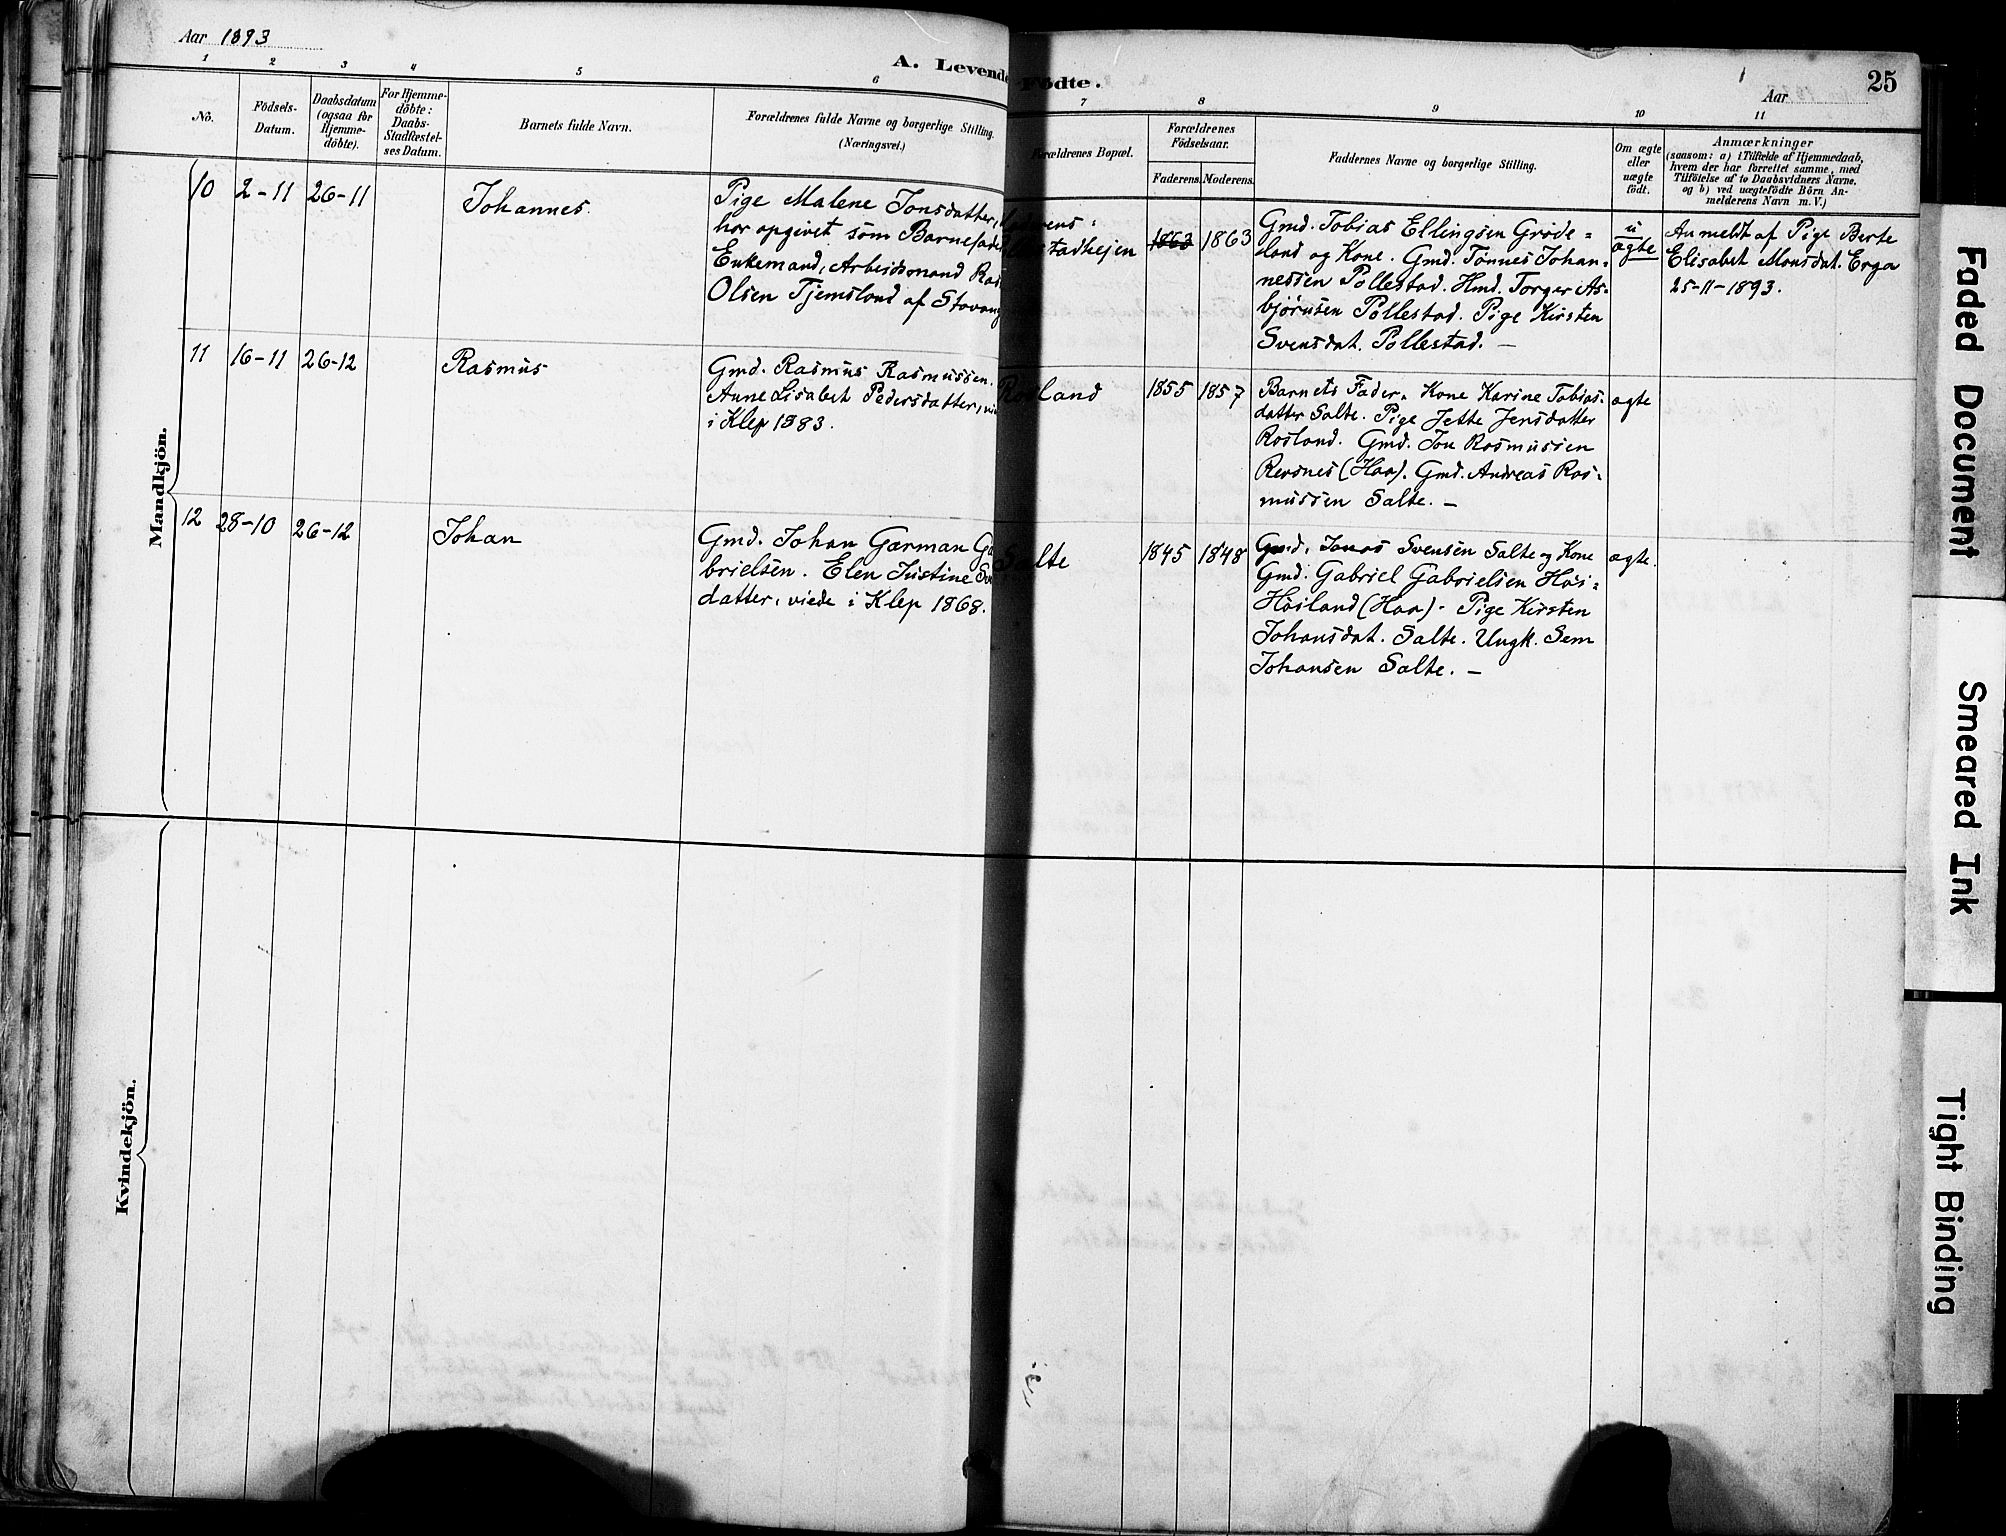 Aar 1893
A. Levende Födte.
Aar
25
1
2
3
4
5
6
7
8
9
10
11
No.
Födsels-
Datum.
Daabsdatum
(ogsaa for
Hjemme-
döbte).
For Hjemme-
döbte:
Daabs-
Stadfæstel-
ses Datum.
Barnets fulde Navn.
Forældrenes fulde Navne og borgerlige Stilling.
(Næringsvei.)
Forældrenes Bopæl.
Forældrenes
Födselsaar.
Faderens.
Moderens.
Faddernes Navne og borgerlige Stilling.
Om ægte
eller
uægte
födt.
Anmærkninger
(saasom: a) i Tilfælde af Hjemmedaab,
hvem der har forrettet samme, med
Tilföielse af to Daabsvidners Navne,
og b) ved uægtefödte Börn An-
melderens Navn m. V.)
Mandkjön.
10
2-11
26-11
Johannes.
Pige Malene Jonsdatter,
har opgivet som Barnefader
Enkemand, Arbeidsmand Ras
Olsen Tjemsland af Stavang
1863
1863
Gmd. Tobias Ellingsen Grøde=
land og Kone. Gmd. Tønnes Johan=
nessen Pollestad. Hmd. Torger As-
bjørnsen Pollestad. Pige Kirsten
Svensdat. Pollestad. —
u
ægte
Anmeldt af Pige Berte
Elisabet Monsdat. Erga
25-11-1893.
11
16-11
26-12
Rasmus
Gmd. Rasmus Rasmussen.
Anne Lisabet Pedersdatter,
i Klep 1883.
Rosland
1855
1857
Barnets Fader. Kone Karine Tobias-
datter Salte. Pige Jette Jensdatter
Rosland. Gmd. Jon Rasmussen
Revsnes (Haa). Gmd. Andreas Ras-
mussen Salte. —
ægte
12
28-10
26-12
Johan
Gmd. Johan Garman Ga
brielsen. Elen Justine Sv
datter, viede i Klep 1868.
Salte
1845
1848
Gmd. Jonas Svensen Salte og Kone
Gmd. Gabriel Gabrielsen Høi=
Høiland (Haa). Pige Kirsten
Johansdat. Salte. Ungk. Sem
Johansen Salte. —
ægte.
Kvindekjön.
Faded Document
Smeared Ink
Tight Binding